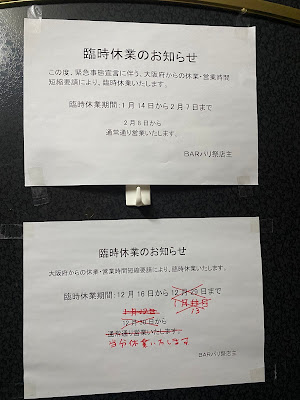 臨時休業のお知らせ
この度、緊急事態宣言に伴う、大阪府からの休業・営業時間
短縮要請により、臨時休業いたします。
臨時休業期間:1月14日から2月7日まで
2月8日から
通常通り営業いたします。
BARパリ祭店主
臨時休業のお知らせ
大阪府からの休業・営業時間短縮要請により、臨時休業いたします。
臨時休業期間:12月16日から12月29日まで
1月
13
12月30日から
通常通り営業いたします。
当分休業いたします
BARパリ祭店主